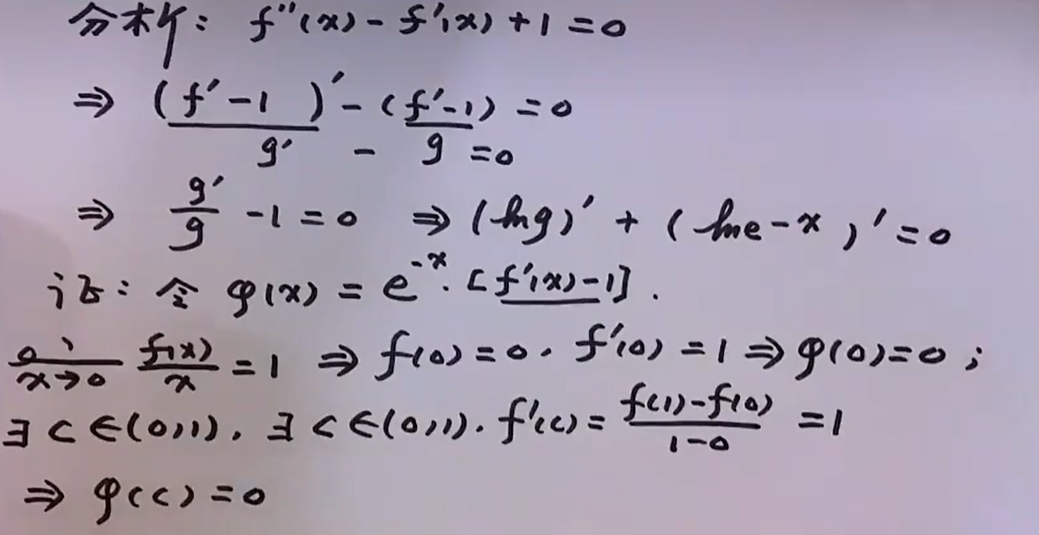 分析: f''(x) - f'(x) + 1 = 0
⇒ (f' - 1)' - (f' - 1) = 0
g' - g = 0
⇒ g'/g - 1 = 0 ⇒ (ln g)' + (ln e^-x)' = 0
证: 令 φ(x) = e^-x · [f'(x) - 1].
x→0 f(x)/x = 1 ⇒ f(0) = 0. f'(0) = 1 ⇒ φ(0) = 0;
∃ c ∈ (0,1), ∃ c ∈ (0,1). f'(c) = f(1) - f(0)/1 - 0 = 1
⇒ φ(c) = 0